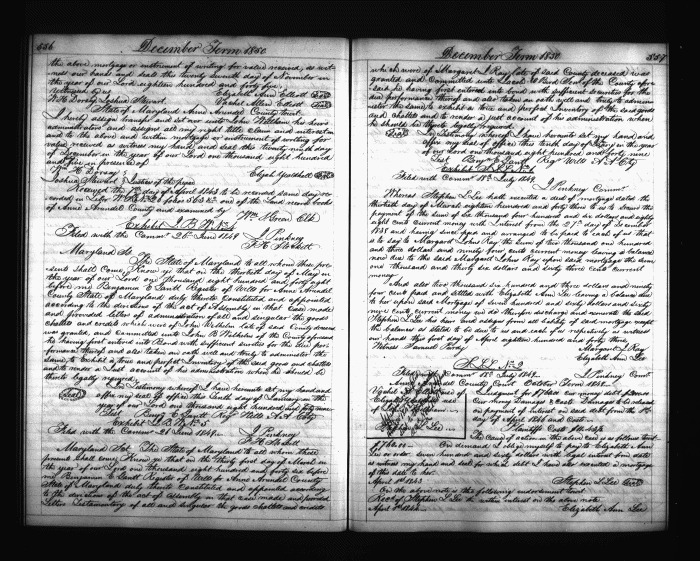 556
December Term 1850
the above mortgage or instrument of writing for value received, as wit-
ness our hands and seals this twenty seventh day of November in
the year of our Lord eighteen hundred and forty five.
Witnessed by us Elizabeth Ann Elliott Seal
W. H. Dorsey Joshua Stewart. Vachel Allen Elliott Seal
State of Maryland Anne Arundel County to wit.
I hereby assign transfer and set over unto John Wilhelm his heirs
administrators and assigns all my right title claim and interest in
and to the above and within mortgage or instrument of writing for
value received as witness my hand and seal this twenty ninth day
of December in the year of our Lord one thousand eight hundred
and five in presence of
Elijah Seal
Wm H Dorsey
Joshua Stewart Justices of the peace
Received the 1st day of April 1843 to be recorded same day re-
corded in Liber one of the Land records
of Anne Arundel County and examined by
Wm S Green Clk.
Exhibit J. B. No 4
Filed with the Commrs 26th June 1849. J. Pinkney
F. H. Stockett
Maryland Sc. The State of Maryland to all whom these pre-
sents shall Come, Know ye that on the thirtieth day of May in
the year of our Lord one thousand eight hundred and forty eight
before me Benjamin E Gantt Register of Wills for Anne Arundel
County State of Maryland duly thereto Constituted and appointed
according to the directions of the act of Assembly in that Case made
and provided letters of administration of all and singular the goods
chattels and credits which were of John Wilhelm late of said County deceased
was granted, and Committed unto J. B. Wilhelm of the County aforesaid
he having first entered into Bond with sufficient sureties for the due per-
formance thereof and also taken an oath well and truly to administer the
same, to exhibit a true and perfect Inventory of the said goods and chattels
and to render a Just account of his administration when he should be
thereto legally required.
Seal In Testimony whereof I have hereunto set my hand and
affix my seal of office this tenth day of January in the
year of our Lord one thousand eight hundred and forty nine
Test Benj E Gantt Reg Wills A. A. Cty
Exhibit J. B. No 5
Filed with the Commrs 26 June 1849. J. Pinkney
F. H. Stockett
Maryland Sct. The State of Maryland to all whom these
presents shall come, Know ye that on the thirty first day of March in
the year of our Lord one thousand eight hundred and forty six before
me Benjamin E Gantt Register of Wills for Anne Arundel County
State of Maryland duly thereto constituted and appointed according
to the direction of the act of Assembly in that case made and provided
Letters Testamentary of all and singular the goods chattels and credits
December Term 1850
557
which were of Margaret L Ray late of said County deceased was
granted and Committed unto Jacob H Bird of the County afore
said he having first entered into bond with sufficient sureties for the
due performance thereof and also taken an oath well and truly to adminis-
ter the same to exhibit a true and perfect Inventory of the said goods
and chattels and to render a just account of his administration when
he should be thereto legally required.
Seal In Testimony whereof I have hereunto set my hand and
affix my seal of office this tenth day of July in the year
of our Lord one thousand eight hundred and forty nine
Test Benj E Gantt Regr Wills A A Cty
Exhibit S. L. L. No 1
Filed with Commrs 18th July 1849. J. Pinkney Commr.
Whereas Stephen L Lee hath executed a deed of mortgage dated the
thirtieth day of August eighteen hundred and forty three to us to secure the
payment of the sum of six thousand four hundred and six dollars and eighty
eight cents current money with Interest from the 27th day of December
1838 and having since paid and arranged to be paid to each of us that
is to say to Margaret Lohor Ray the sum of two thousand one hundred
and three dollars and ninety four cents current money leaving a balance
now due to the said Margaret Lohor Ray upon said mortgage the sum
one thousand and thirty six dollars and sixty three cents current
money.
And also two thousand six hundred and three dollars and ninety
four cents paid and settled with Elizabeth Ann Lee leaving a balance due
to her upon said Mortgage of seven hundred and sixty dollars and sixty
nine cents current money we do therefor discharge and exonerate the said
Stephen L Lee his heirs and assigns from all liability of said mortgage except
the balances as stated to be due to us and each of us respectively as witness
our hands this first day of April eighteen hundred and forty three.
Witness Samuel Perry Margaret L Ray
Elizabeth Ann Lee
S. L. L. No 2
Filed with Commrs 18th July 1849. J. Pinkney Commr.
Anne Arundel County Court October Term 1842
Judgment for $7600 curr money debt
curr money Damages & Costs Damages to be released
on payment of interest on said debt from the 1st
day of April 1844 and Costs.
Plaintiffs Cost
The Cause of action in the above case is as follows to wit
$760.00 On demand I oblige myself to pay to Elizabeth Ann
Lee or order seven hundred and sixty dollars with legal interest from date
as witness my hand and seal for which debt I have also executed a mortgage
of this date to her.
April 1st 1843 Stephen L Lee Seal
On the above note is the following endorsement to wit
Recd of Stephen L Lee the entire interest on the above note
April 1844. Elizabeth Ann Lee